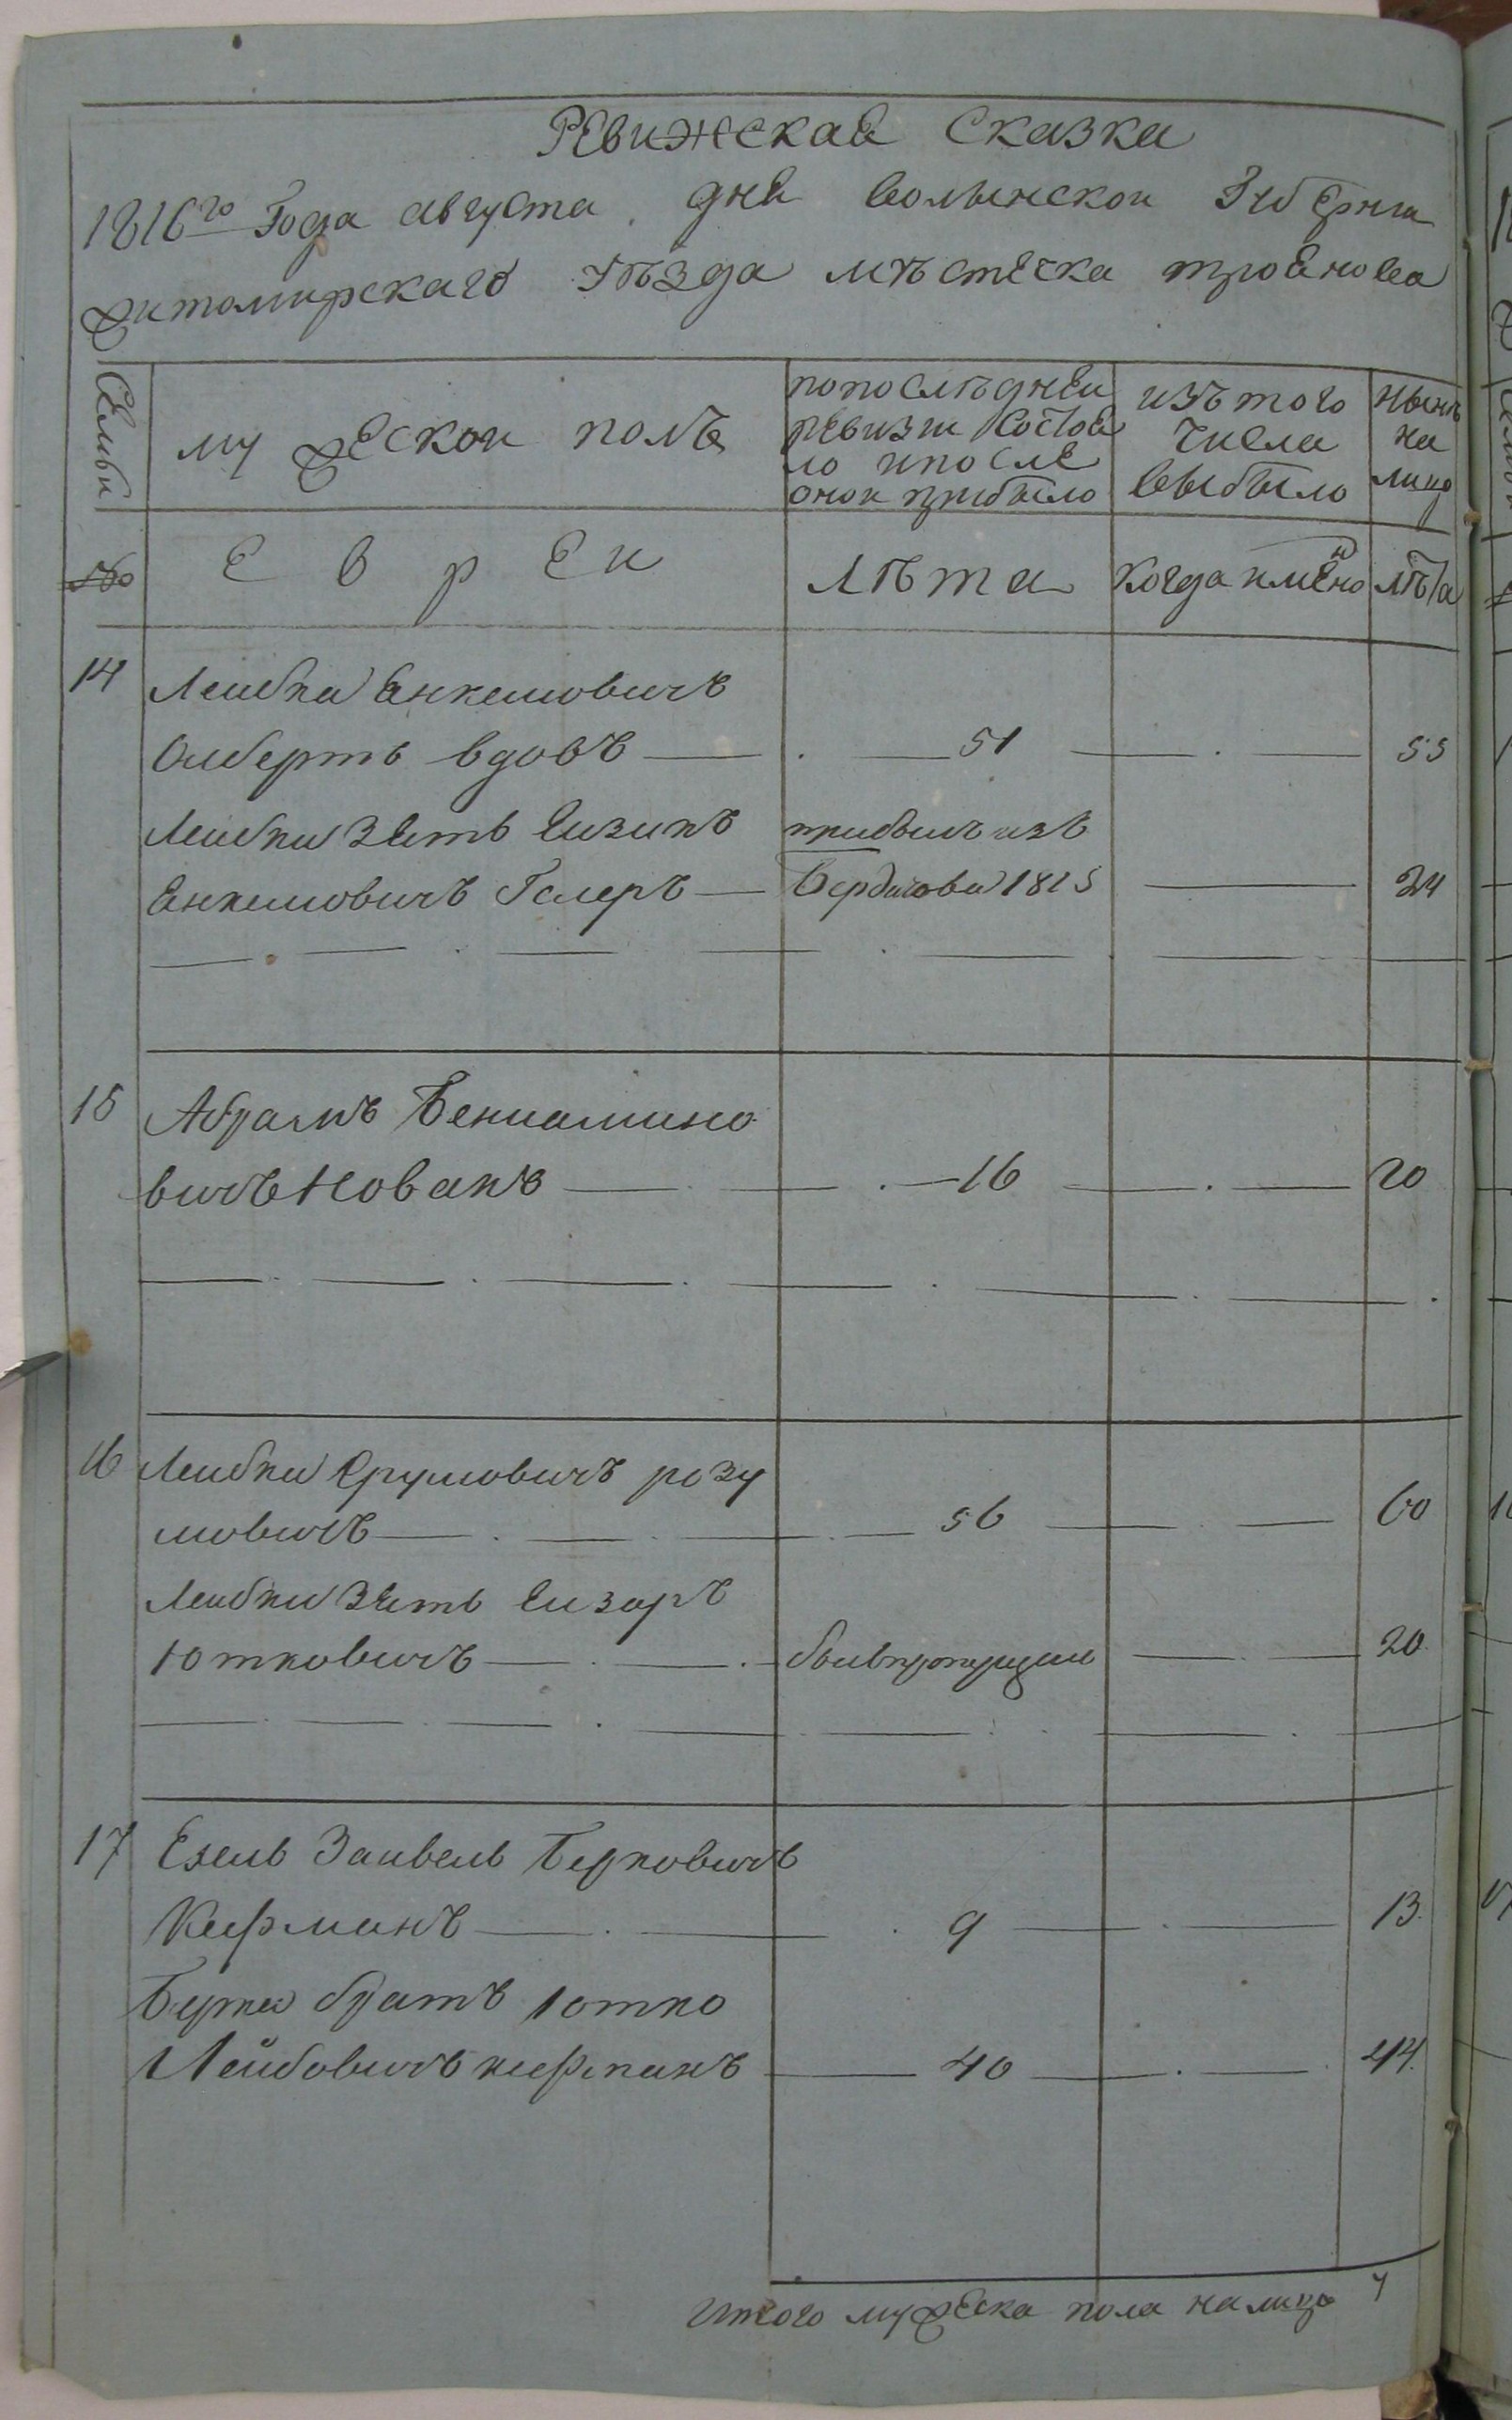 Ревижская Сказка
1816го Года августа дня волынской Губернии
житомирскаго уѣзда мѣстечка троянова
Семьи
мужеской полъ
попослѣдней ревизии состоя ло ипосле оной прибыло
изъ того числа выбыло
нынѣ на лицо
№
Е в р е и
Лѣта
когда имено
лѣта
14 Лейбка Янкелювичъ
Альбертъ вдовъ 51 55
Лейбки зять Еизикъ прибылъ изъ
Янкелювичъ Гелеръ Бердичова 1815 24
15 Абрамъ Бениамино
вичъ Новакъ 16 20
16 Лейбка Срулювичъ розу
мовичъ 56 60
Лейбки зять Еизоръ
Іотковичъ былъ пропущенъ 20
17 Ехель Заивель Берковичъ
Кифманъ 9 13
Берка братъ Іотко
Лейбовичъ кифманъ 40 44
Итого мужеска пола налицо 7